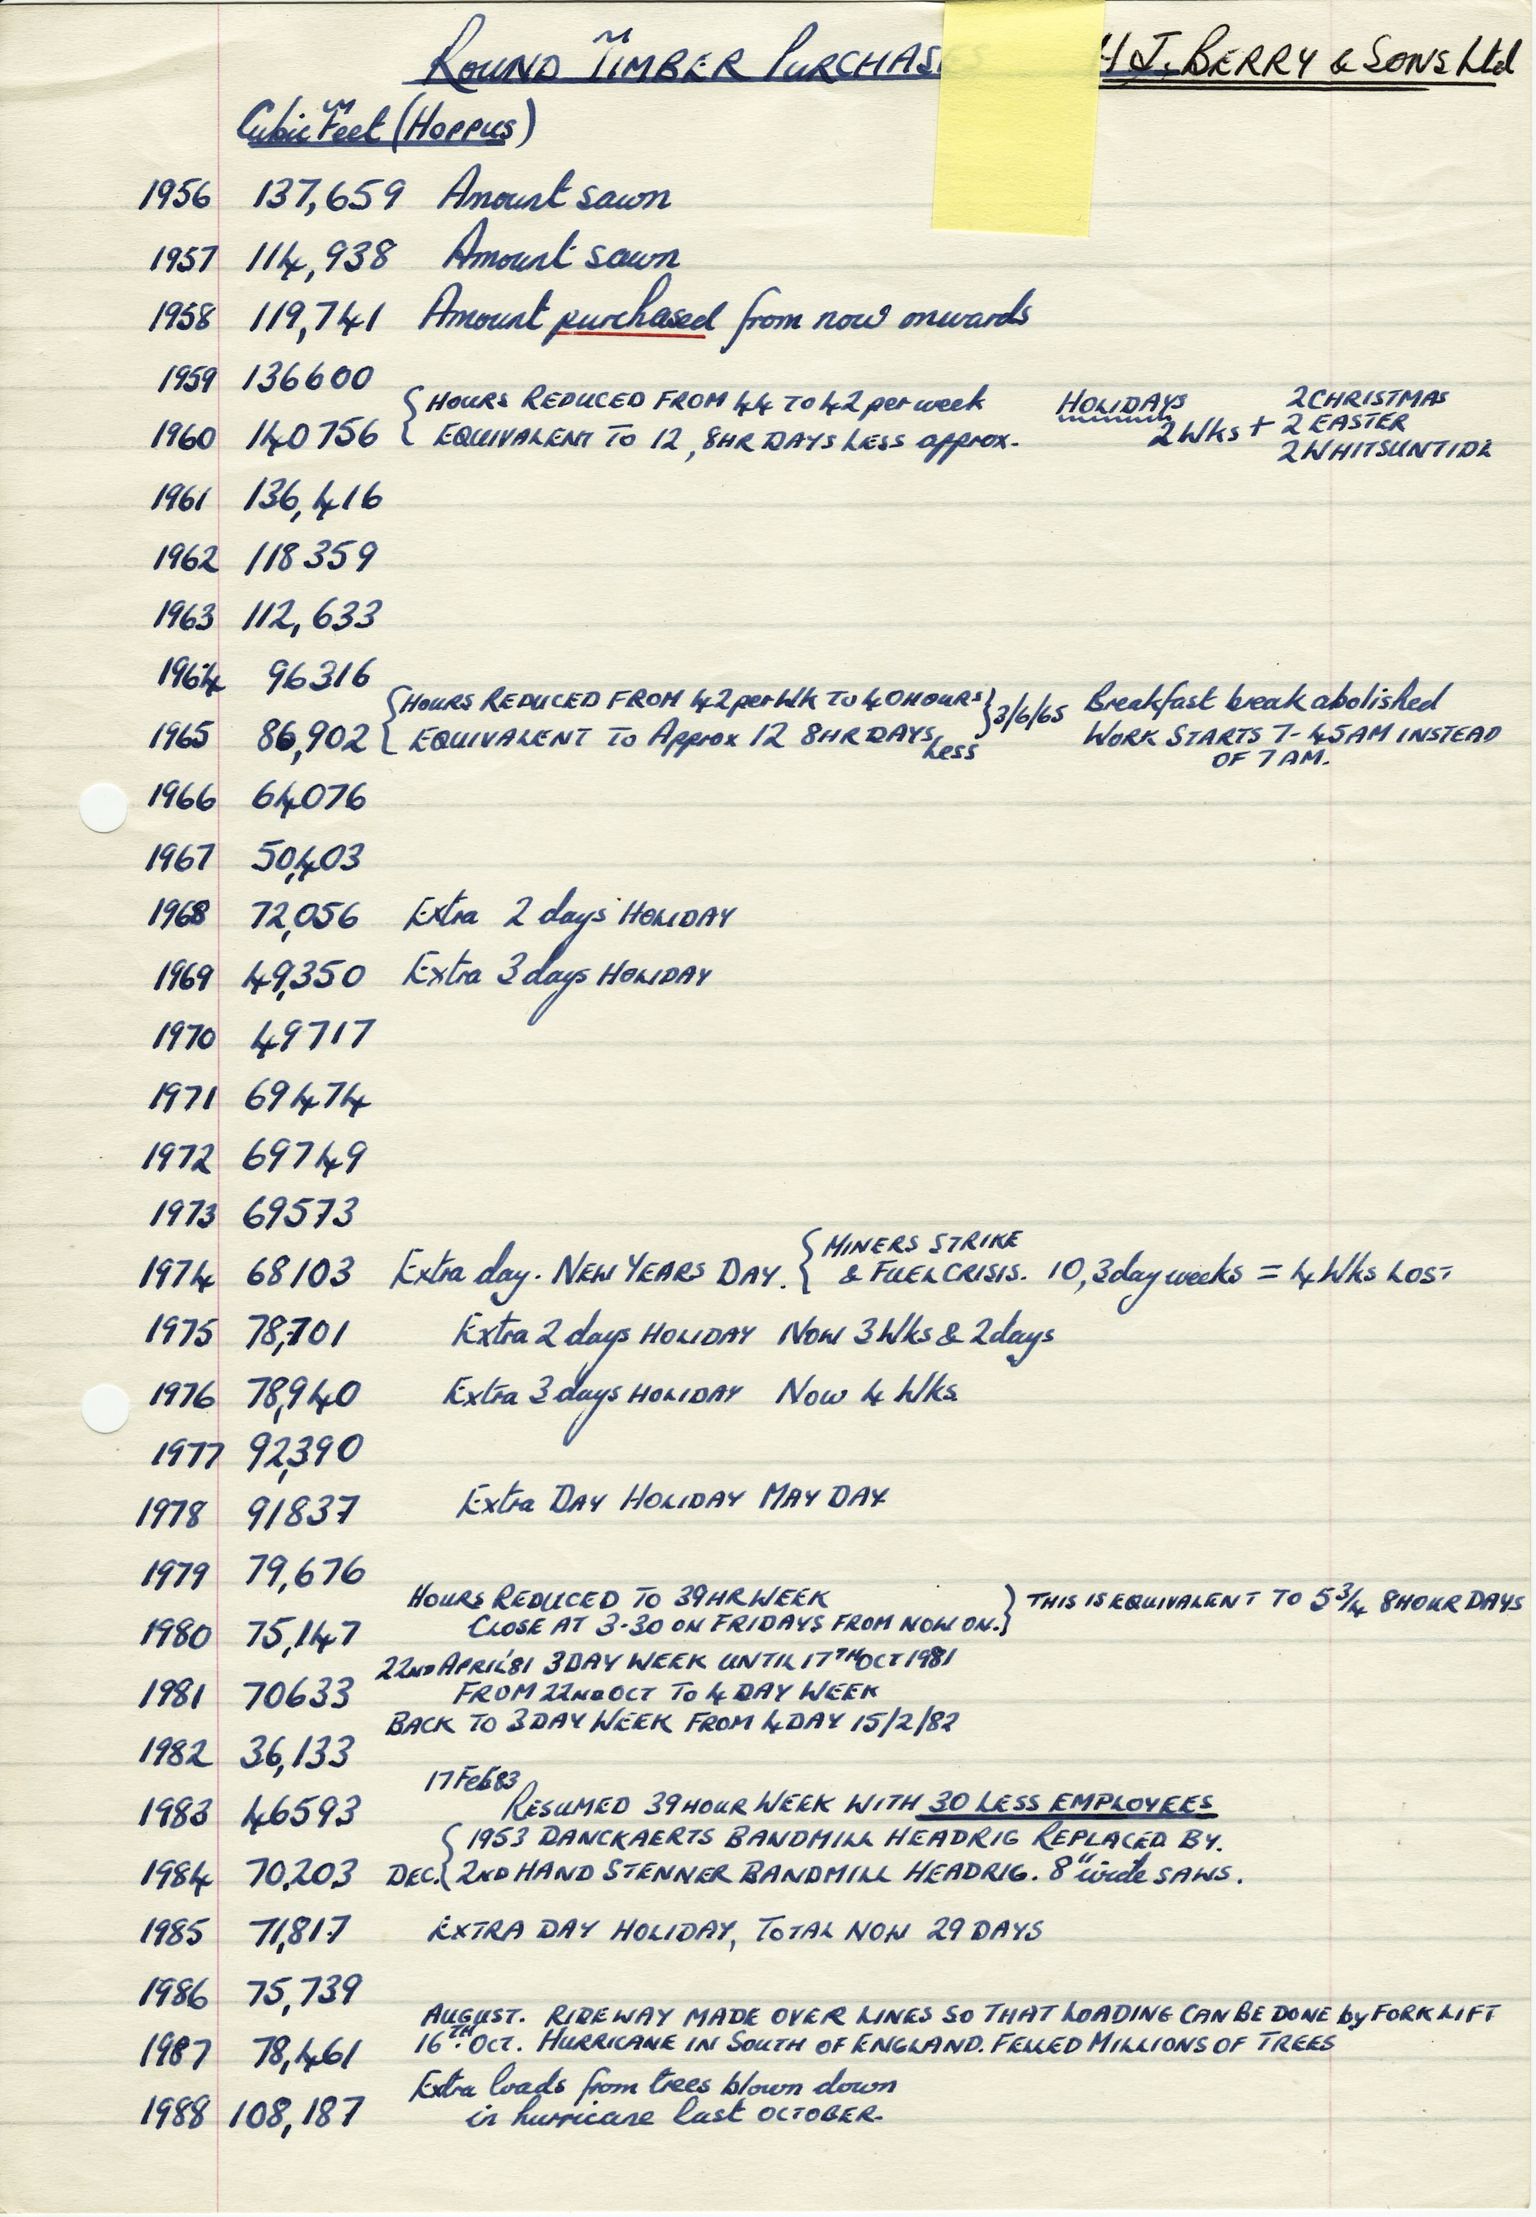 ROUND TIMBER PURCHASES H J. BERRY & SONS Ltd
Cubic Feet (HOPPUS)
1956 137,659 Amount sawn
1957 114,938 Amount sawn
1958 119,741 Amount purchased from now onwards
1959 136600
{ HOURS REDUCED FROM 44 TO 42 per week HOLIDAYS 2 CHRISTMAS
1960 140756 EQUIVALENT TO 12, 8HR DAYS LESS approx. 2 Wks + 2 EASTER
2 WHITSUNTIDE
1961 136,416
1962 118359
1963 112,633
1964 96316
{ HOURS REDUCED FROM 42 per Wk TO 40 HOURS } 3/6/65 Breakfast break abolished
1965 86,902 EQUIVALENT TO Approx 12 8HR DAYS Less WORK STARTS 7-45AM INSTEAD
OF 7 AM.
1966 64076
1967 50,403
1968 72,056 Extra 2 days HOLIDAY
1969 49,350 Extra 3 days HOLIDAY
1970 49717
1971 69474
1972 69749
1973 69573
{ MINERS STRIKE
1974 68103 Extra day. NEW YEARS DAY. & FUEL CRISIS. 10, 3 day weeks = 4 Wks LOST
1975 78,701 Extra 2 days HOLIDAY NOW 3 Wks & 2 days
1976 78,940 Extra 3 days HOLIDAY NOW 4 Wks
1977 92,390
1978 91837 Extra DAY HOLIDAY MAY DAY
1979 79,676
HOURS REDUCED TO 39 HR WEEK } THIS IS EQUIVALENT TO 5 3/4 8 HOUR DAYS
1980 75,147 CLOSE AT 3-30 ON FRIDAYS FROM NOW ON.
22ND APRIL '81 3 DAY WEEK UNTIL 17TH OCT 1981
1981 70633 FROM 22ND OCT TO 4 DAY WEEK
BACK TO 3 DAY WEEK FROM 4 DAY 15/2/82
1982 36,133
17 Feb 83
1983 46593 RESUMED 39 HOUR WEEK WITH 30 LESS EMPLOYEES
{ 1953 DANCKAERTS BANDMILL HEADRIG REPLACED BY.
1984 70,203 DEC. 2ND HAND STENNER BANDMILL HEADRIG. 8" wide SAWS.
1985 71,817 EXTRA DAY HOLIDAY, TOTAL NOW 29 DAYS
1986 75,739
AUGUST. RIDEWAY MADE OVER LINES SO THAT LOADING CAN BE DONE by FORK LIFT
1987 78,461 16TH. OCT. HURRICANE IN SOUTH OF ENGLAND. FELLED MILLIONS OF TREES
Extra loads from trees blown down
1988 108,187 in hurricane last OCTOBER.